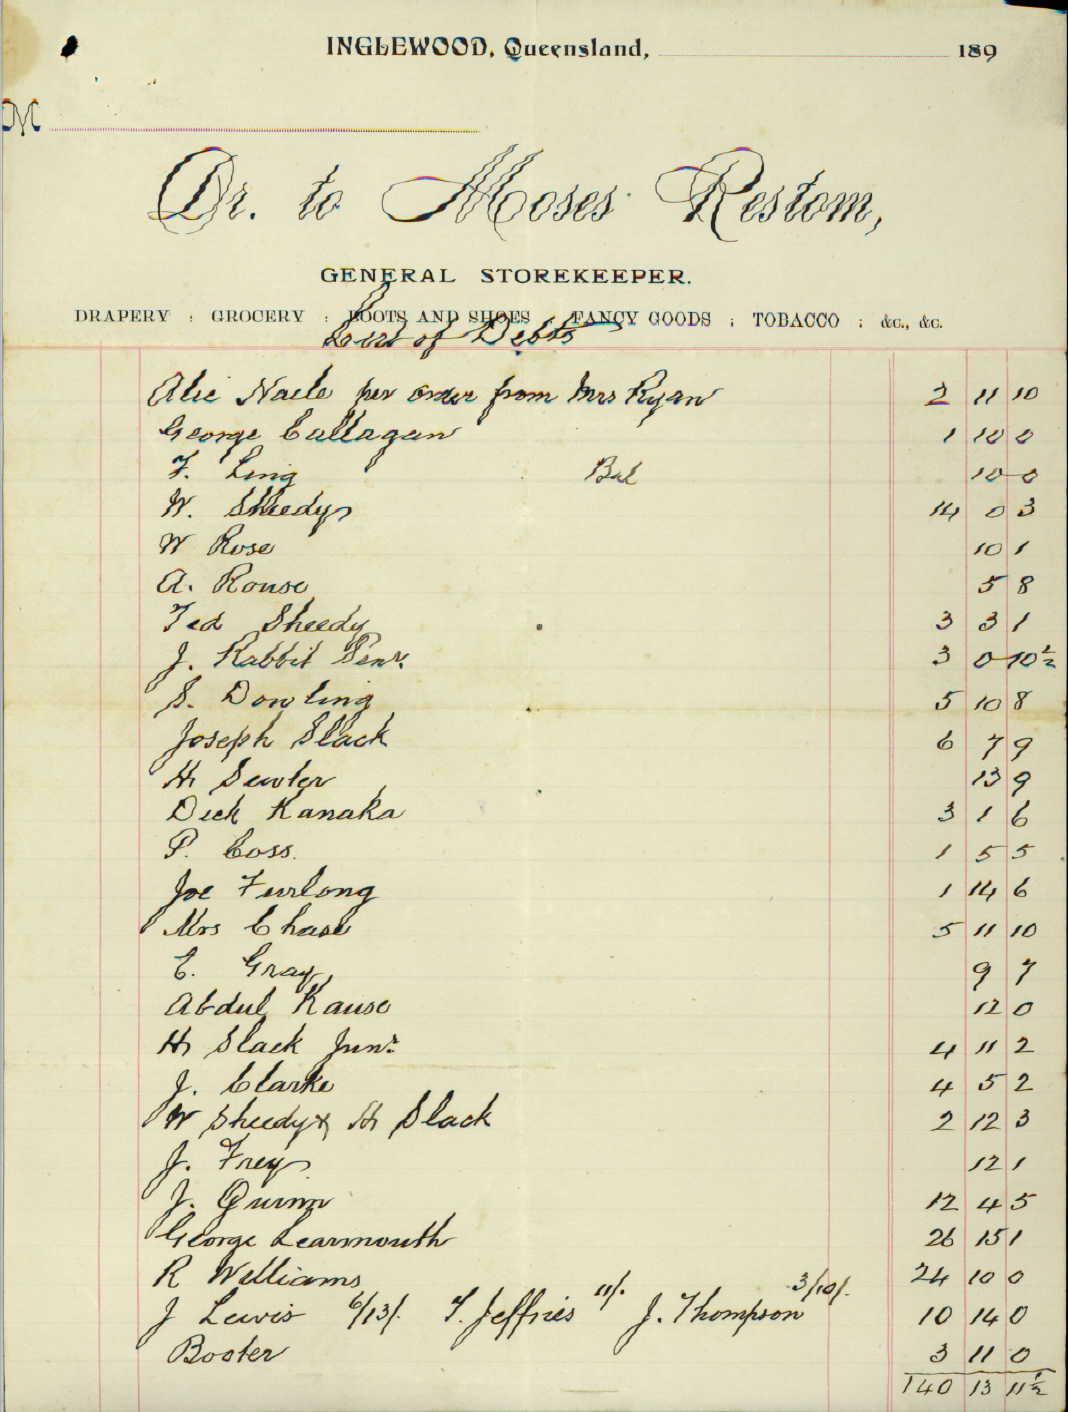 INGLEWOOD, Queensland, 189
M
Dr. to Moses Restom,
GENERAL STOREKEEPER.
DRAPERY : GROCERY : BOOTS AND SHOES ; FANCY GOODS ; TOBACCO ; &c., &c.
List of Debts
Alic Naele per order from Mrs Ryan 2 11 10
George Callagan 1 10 0
F. Ling Bal 10 0
W. Sheedy 14 0 3
W Rose 10 1
A. Rouse 5 8
Ted Sheedy 3 3 1
J. Rabbit Senr. 3 0 10½
S. Dowling 5 10 8
Joseph Slack 6 7 9
H 13 9
Dick Kanaka 3 1 6
P. Coss. 1 5 5
Joe Furlong 1 14 6
Mrs Chase 5 11 10
C. Gray 9 7
Abdul Kause 12 0
H Slack Junr. 4 11 2
J. Clarke 4 5 2
W Sheedy & H Slack 2 12 3
J. Frey 12 1
J. Quinn 12 4 5
George Learmouth 26 15 1
R Williams 24 10 0
J Lewis 6/13/. T. Jeffries 11/. J. Thompson 3/10/. 10 14 0
Booter 3 11 0
140 13 11½